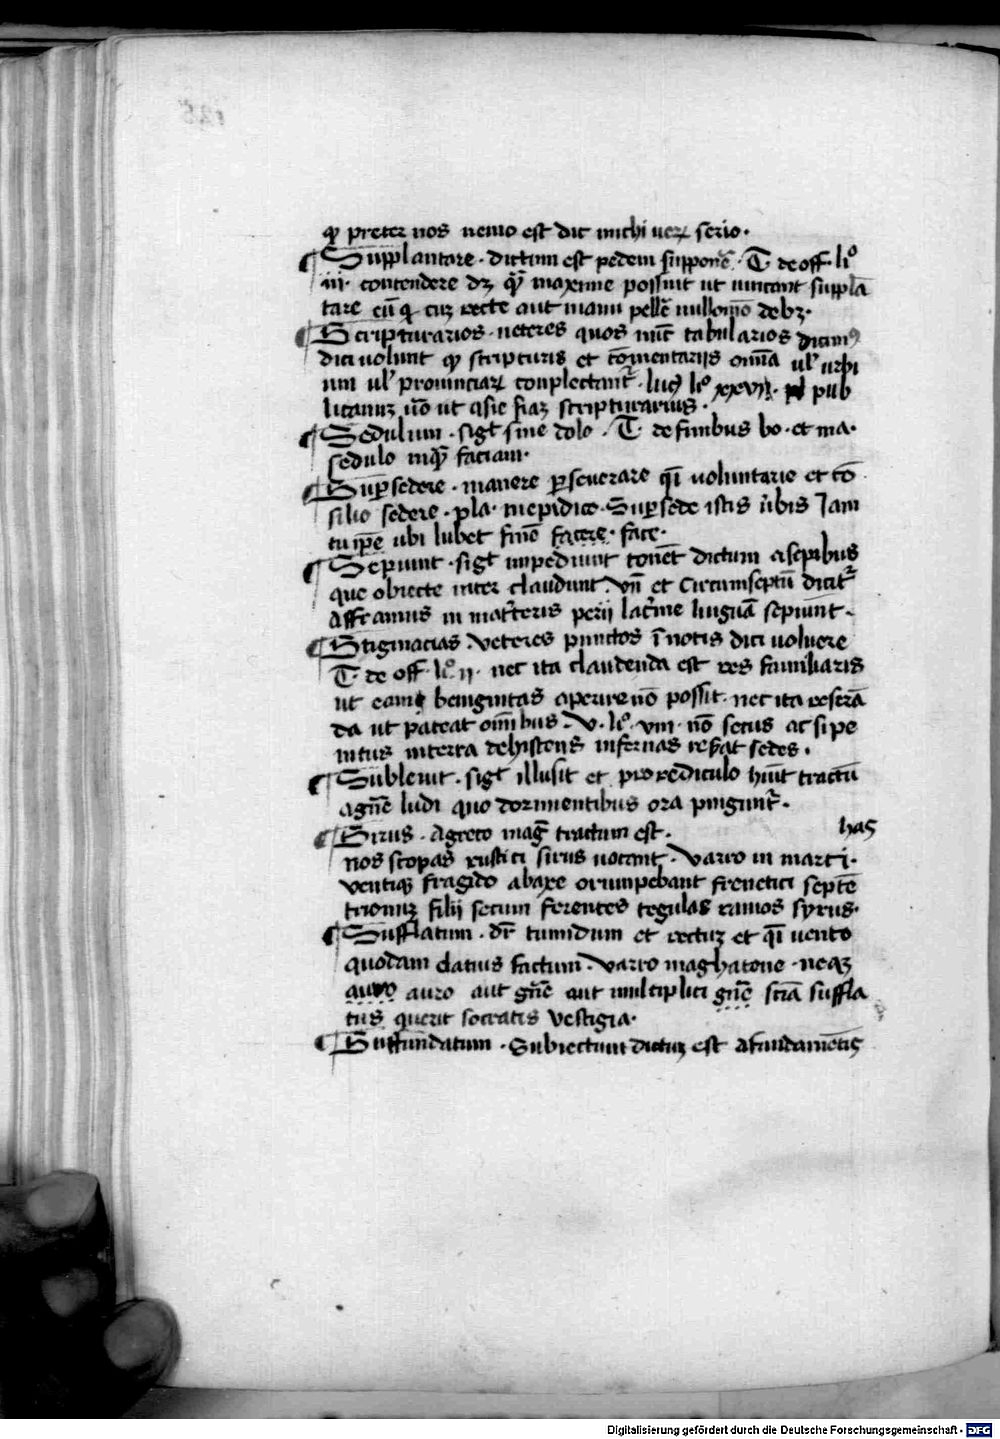 qͥ preter nos nemo est dic michi uerꝝ serio.
Supplantare. dictum est pedem supponē. T. de off. liͦ
iii. contendere dꝫ qͣꝫ maxime possint ut uincant supplā
tare eū qͥ cuꝫ certe aut manu pellē nulloomō debꝫ.
Scripturarios. ueteres quos nūc tabularios dicimꝰ
dici uolunt qͥ scripturis et cōmentariis omīa ul̓ urbi
um ul̓ prouinciaꝝ conplectant᷑. luc̓ liͦ xxvii. pub
licanuꝫ uͦo ut asie fiaꝫ scripturarius.
Sedulum. sigͭ sine dolo. T. de finibus bo. et ma.
sedulo inqͣꝫ faciam.
Suꝑsedere. manere ꝑseuerare qͣi uoluntarie et cō
silio sedere. pla. in epidico. Suꝑsede istis u̓bis Jam
tu ipē ubi lubet finē facere. face.
Sepiunt. sigͭ impediunt tonēt dictum asepibus
que obiecte inter claudunt. Vn̄ et Circumseptū dicit᷑
Afframus in mat̓teris perii lac̓me linguā sepiunt.
Stigmacias. Veteres punctos ī notis dici uoluere
T. de off. liͦ. ii. nec ita claudenda est res familiaris
ut eam benignitas aperire nō possit. nec ita reserā
da ut pateat om̄ibus. V. liͦ. viii. nō secus ac si pe
nitus interra dehiscens infernas reẜat sedes.
Subleuit. sigͭ illusit et proredículo hiūt tractū
agn̄e ludi quo dormientibus ora pingunt᷑.
Sirus. Agreco mag̃ tractum est. has
nos scopas rustici sirus uocant. Varro in marci.
Ventiqꝫ fragido abaxe oriumpebant frenetici septē
trionuꝫ filii secum ferentes tegulas ramos syrus.
Sufflatum. dr̄ tumidum et rectuꝫ et qͣi uento
quodam elatius factum. Varro maghatone. neqꝫ
auro auro aut gn̄e aut multiplici gn̄e sciā suffla
tus querit socratis vestigia.
Suffundatum. Subiectum dictuꝫ est afundamētis
Digitalisierung gefördert durch die Deutsche Forschungsgemeinschaft - DFG